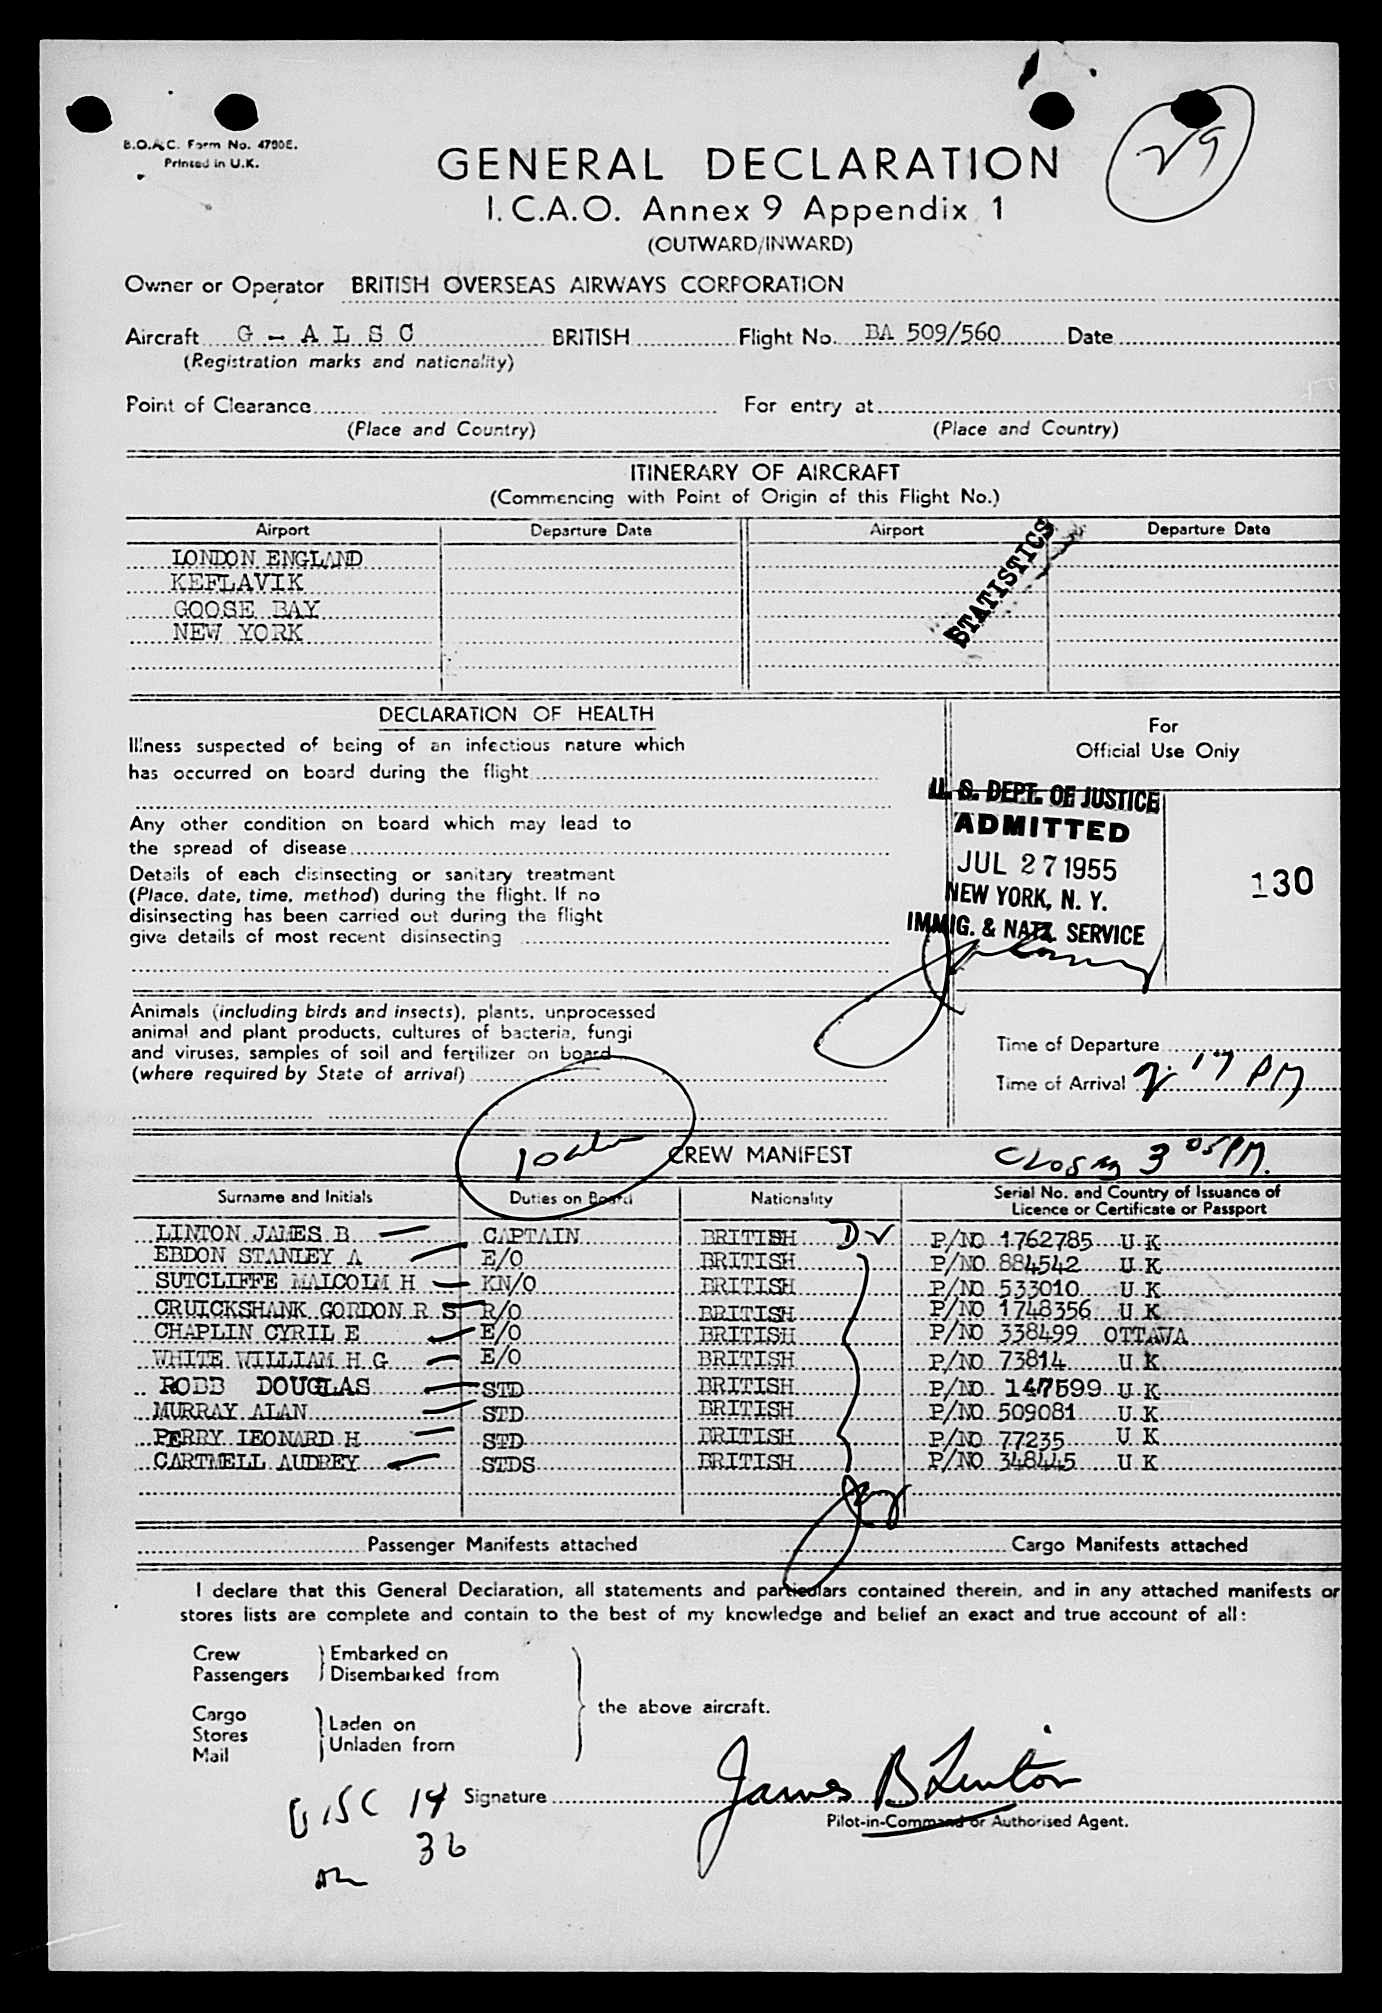 29
B.O.A.C. Form No. 4790E.
Printed in U.K.
GENERAL DECLARATION
I.C.A.O. Annex 9 Appendix 1
(OUTWARD/INWARD)
Owner or Operator BRITISH OVERSEAS AIRWAYS CORPORATION
Aircraft G - A L S C BRITISH Flight No. BA 509/560 Date
(Registration marks and nationality)
Point of Clearance For entry at
(Place and Country) (Place and Country)
ITINERARY OF AIRCRAFT
(Commencing with Point of Origin of this Flight No.)
Airport Departure Date Airport Departure Date
LONDON ENGLAND
KEFLAVIK
GOOSE BAY
NEW YORK
STATISTICS
DECLARATION OF HEALTH
Illness suspected of being of an infectious nature which
has occurred on board during the flight
Any other condition on board which may lead to
the spread of disease
Details of each disinsecting or sanitary treatment
(Place, date, time, method) during the flight. If no
disinsecting has been carried out during the flight
give details of most recent disinsecting
For
Official Use Only
U. S. DEPT. OF JUSTICE
ADMITTED
JUL 27 1955
NEW YORK, N. Y.
IMMIG. & NATZ. SERVICE
130
Animals (including birds and insects), plants, unprocessed
animal and plant products, cultures of bacteria, fungi
and viruses, samples of soil and fertilizer on board
(where required by State of arrival)
Time of Departure
Time of Arrival 2.17 PM
CREW MANIFEST
Closing 3 05 PM.
Surname and Initials Duties on Board Nationality Serial No. and Country of Issuance of
Licence or Certificate or Passport
LINTON JAMES B CAPTAIN BRITISH P/NO 1762785 U K
EBDON STANLEY A E/O BRITISH P/NO 884542 U K
SUTCLIFFE MALCOLM H KN/O BRITISH P/NO 533010 U K
CRUICKSHANK GORDON R S R/O BRITISH P/NO 1748356 U K
CHAPLIN CYRIL E E/O BRITISH P/NO 338499 OTTAWA
WHITE WILLIAM H G E/O BRITISH P/NO 73814 U K
ROBB DOUGLAS STD BRITISH P/NO 147599 U K
MURRAY ALAN STD BRITISH P/NO 509081 U K
PERRY LEONARD H STD BRITISH P/NO 77235 U K
CARTMELL AUDREY STDS BRITISH P/NO 348445 U K
Passenger Manifests attached Cargo Manifests attached
I declare that this General Declaration, all statements and particulars contained therein, and in any attached manifests or
stores lists are complete and contain to the best of my knowledge and belief an exact and true account of all:
Crew Embarked on
Passengers Disembarked from
the above aircraft.
Cargo
Stores
Mail
Laden on
Unladen from
Signature James B Linton
Pilot-in-Command or Authorised Agent.
DISC 14
36